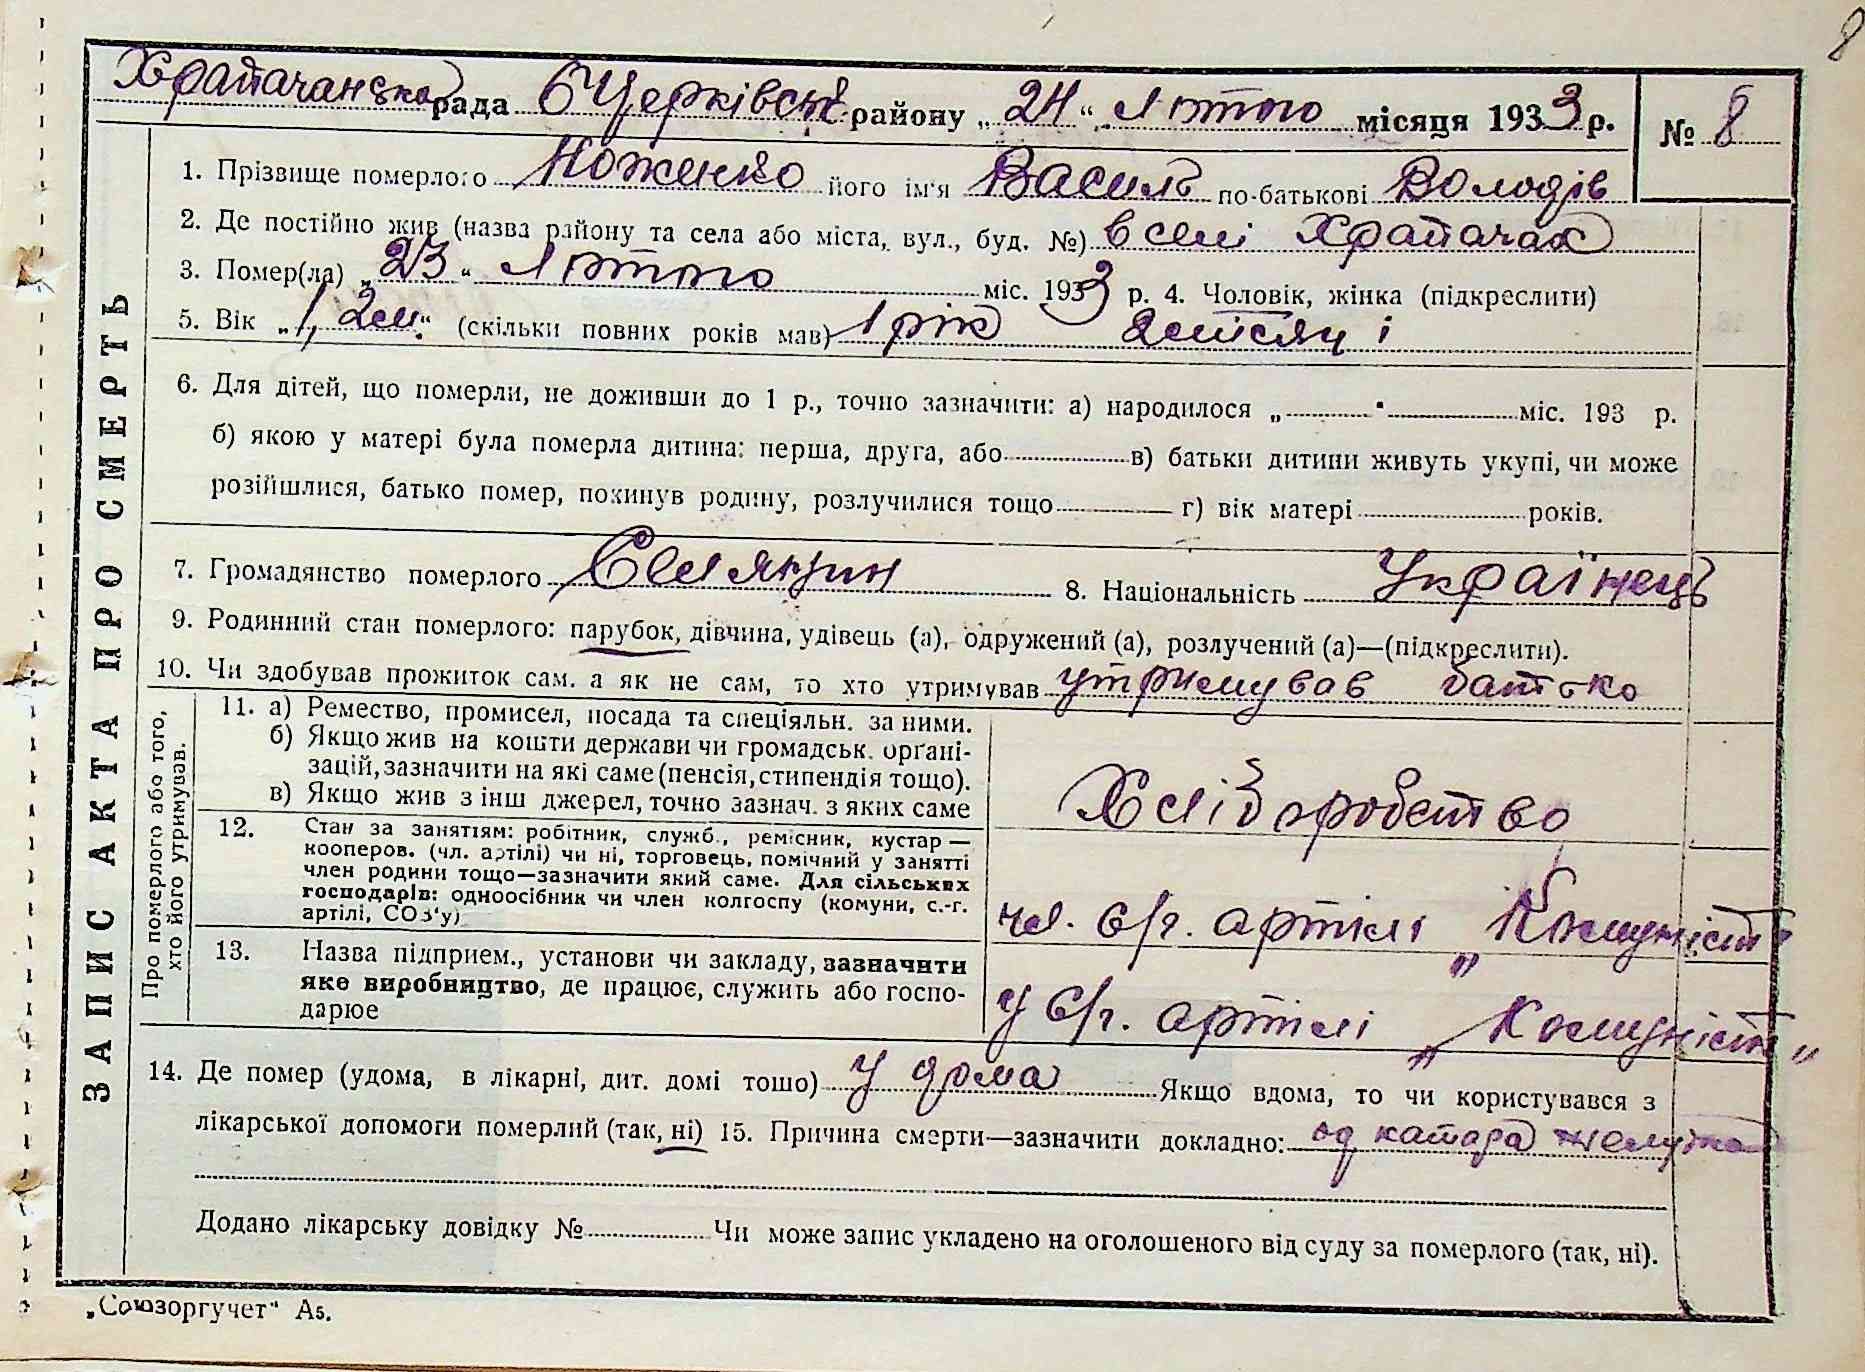 8
Храпачанська рада БЦерківськ району „24“ лютого місяця 1933 р. № 8
1. Прізвище померлого Ноженко його ім'я Василь по-батькові Володів
2. Де постійно жив (назва району та села або міста, вул., буд. №) в селі Храпачах
3. Помер(ла) „23“ лютого міс. 1933 р. 4. Чоловік, жінка (підкреслити)
5. Вік „1, 2м.“ (скільки повних років мав) 1 рік 2 місяці
6. Для дітей, що померли, не доживши до 1 р., точно зазначити: а) народилося „ “ міс. 193 р.
б) якою у матері була померла дитина: перша, друга, або в) батьки дитини живуть укупі, чи може
розійшлися, батько помер, покинув родину, розлучилися тощо г) вік матері років.
7. Громадянство померлого Селянин 8. Національність Українець
9. Родинний стан померлого: парубок, дівчина, удівець (а), одружений (а), розлучений (а)—(підкреслити).
10. Чи здобував прожиток сам. а як не сам, то хто утримував утримував батько
11. а) Ремество, промисел, посада та спеціяльн. за ними.
б) Якщо жив на кошти держави чи громадськ. органі-
зацій, зазначити на які саме (пенсія, стипендія тощо).
в) Якщо жив з інш джерел, точно зазнач. з яких саме
Хліборобство
12. Стан за занятіям: робітник, служб., ремісник, кустар —
кооперов. (чл. артілі) чи ні, торговець, помічний у занятті
член родини тощо—зазначити який саме. Для сільських
господарів: одноосібник чи член колгоспу (комуни, с.-г.
артілі, СОЗ'у)
чл. с/г. артілі „Комуніст“
13. Назва підприєм., установи чи закладу, зазначити
яке виробництво, де працює, служить або госпо-
дарює
у с/г. артілі „Комуніст“
14. Де помер (удома, в лікарні, дит. домі тощо) у дома Якщо вдома, то чи користувався з
лікарської допомоги померлий (так, ні) 15. Причина смерти—зазначити докладно: од катара желудка
Додано лікарську довідку № Чи може запис укладено на оголошеного від суду за померлого (так, ні).
ЗАПИС АКТА ПРО СМЕРТЬ
Про померлого або того,
хто його утримував.
„Союзоргучет“ А5.